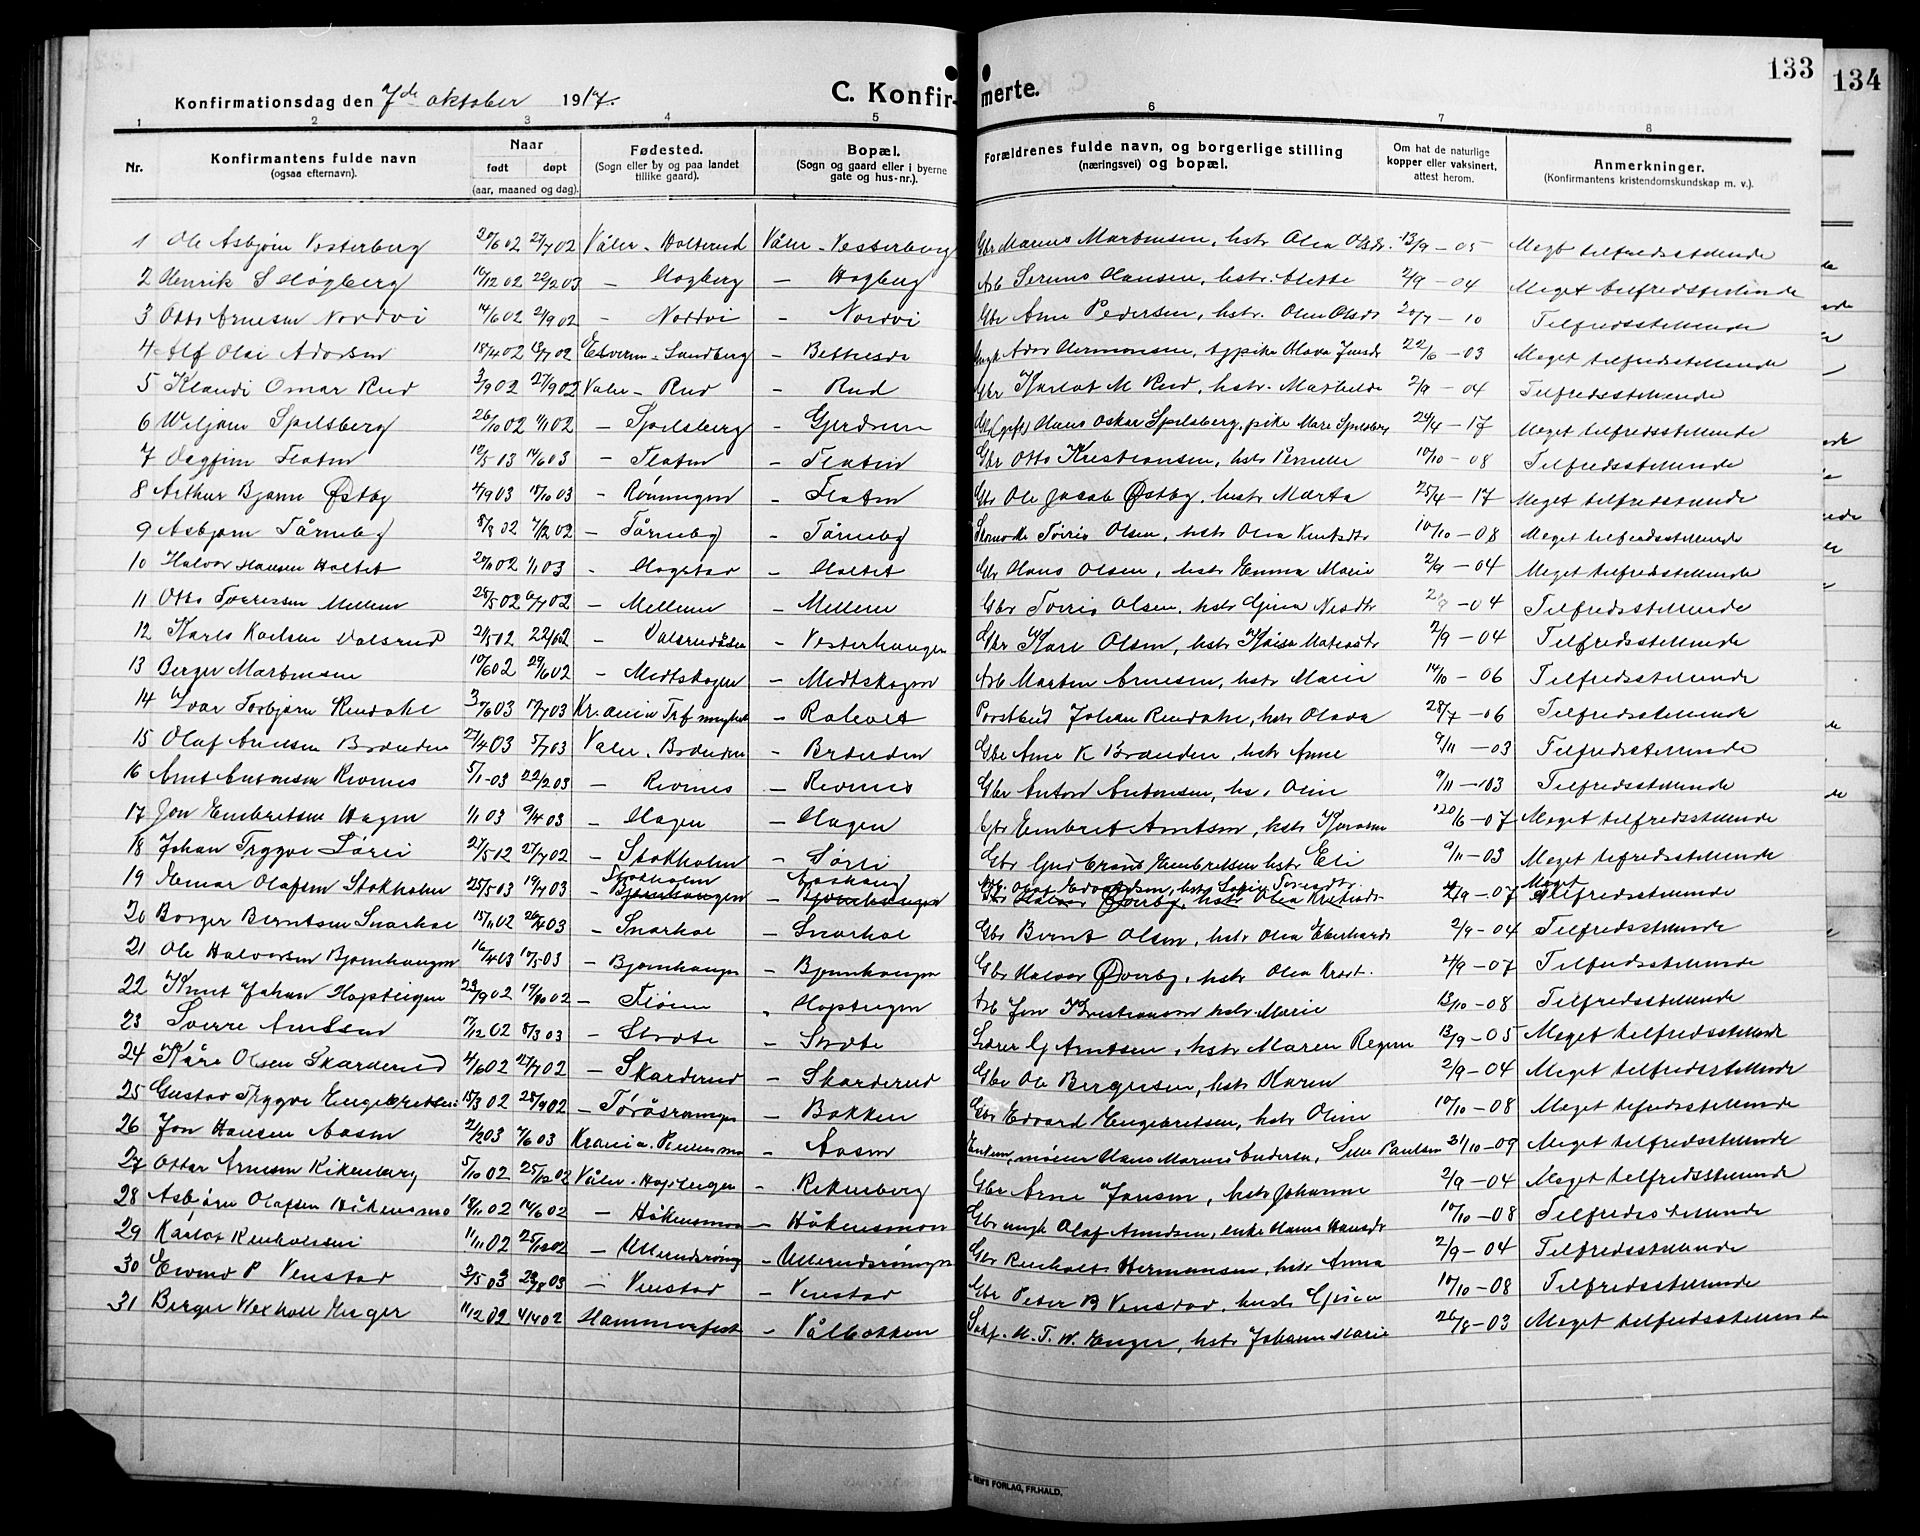 133
134
Konfirmationsdag den 7de oktober 1917.
C. Konfirmerte.
1 2 3 4 5 6 7 8
Nr. Konfirmantens fulde navn (ogsaa efternavn). Naar født døpt (aar, maaned og dag). Fødested. (Sogn eller by og paa landet tillike gaard). Bopæl. (Sogn og gaard eller i byerne gate og hus-nr.). Forældrenes fulde navn, og borgerlige stilling (næringsvei) og bopæl. Om hat de naturlige kopper eller vaksinert, attest herom. Anmerkninger. (Konfirmantens kristendomskundskap m. v.).
1 Ole Asbjørn Vesterberg 27/7 02 Våler - Holterud Våler - Vesterberg Gbr Marius Martinsen, hstr Olea Olsdr. 13/9 - 05 Meget tilfredsstillende
2 Henrik S Høgberg 16/12 02 22/2 03 - Høgberg - Høgberg Arb Serinus Hansen, hstr. Alette 2/9 - 04 Meget tilfredsstillende
3 Otto Arnesen Nordvi 14/6 02 21/9 02 - Nordvi - Nordvi Gbr Arne Pedersen, hstr. Olea Olsdr 20/7 - 10 Tilfredsstillende
4 Alf Olai Adorsen 18/4 02 13/7 02 Elverum - Sundberg - Bethesda Ador Hermansen, Olava Jensdr 22/6 - 03 Meget tilfredsstillende
5 Klandi Omar Rud 3/9 02 27/9 02 Våler - Rud - Rud Gbr Karlot M Rud, hstr. Mathilde 2/9 - 04 Tilfredsstillende
6 Wiljam Spilsberg 26/10 02 1/11 02 - Spilsberg - Gjerdrum (gift) Hans Oskar Spilsberg, pike Mare Spilsberg 24/4 - 17 Meget tilfredsstillende
7 Dagfin Flaten 12/5 03 14/6 03 - Flaten - Flaten Gbr Otto Kristiansen, hstr Pernille 10/10 - 08 Tilfredsstillende
8 Arthur Bjarne Østby 4/9 03 18/10 03 - Rønningen - Flaten Gbr Ole Jacob Østby, hstr Marta 25/4 - 17 Meget tilfredsstillende
9 Asbjørn Tårneby 5/8 02 7/12 02 - Tårneby - Tårneby Skomaker Torris Olsen, hstr Olea Knutsdtr 10/10 - 08 Meget tilfredsstillende
10 Halvor Hansen Holtet 27/11 02 1/1 03 - Hagstad - Holtet Gbr Hans Olsen, hstr Emma Marie 2/9 - 04 Meget tilfredsstillende
11 Otto Torrissen Mellem 25/5 02 6/7 02 - Mellem - Mellem Gbr Torris Olsen, hstr Gina Nilsdtr 2/9 - 04 Tilfredsstillende
12 Karls Karlsen Valsrud 21/5 02 22/6 02 - Valsrudåsen - Vesterhaugen Gbr Karl Olsen, hstr Kaisa Matiasdtr 2/9 - 04 Tilfredsstillende
13 Berger Martinsen 10/6 02 29/6 02 - Midtskogen - Midtskogen Arb Martin Arnesen, hstr Marie 14/10 - 06 Tilfredsstillende
14 Ivar Torbjørn Rendahl 3/6 03 12/7 03 Kr.ania Trf. menighet - Ralevet Postbud Johan Rendahl, hstr Olava 28/7 - 06 Tilfredsstillende
15 Olaf Arnesen Brænden 27/4 03 5/7 03 Våler - Brænden - Brænden Gbr Arne K Brænden, hstr Anne 9/11 - 03 Tilfredsstillende
16 Arnt Antonsen Revnes 5/1 - 03 22/2 03 - Revnes - Revnes Gbr Anton Antonsen, hs. Oline 9/11 - 03 Tilfredsstillende
17 Jon Embretsen Hagen 1/1 03 9/4 03 - Hagen - Hagen Gbr Embret Arntsen, hstr 20/6 - 07 Meget tilfredsstillende
18 Johan Trygve Sørli 27/5 02 27/7 02 - Stokholm - Sørli Gbr Gudbrand Embretsen hstr Eli 9/11 - 03 Meget tilfredsstillende
19 Einar Olafsen Stokholm 25/5 03 19/7 03 - Stokholm Bjørnhaugen - Aashaug Bjørnhaugen Arb. Olaf Edvardsen, hstr Gbr Halvor Øverby, hstr Olea Kristiansdr 4/9 - 07 Meget tilfredsstillende
20 Borger Berntsen Snarhol 15/11 02 26/4 03 - Snarhol - Snarhol Gbr Bernt Olsen, hstr Olea Eberhardsdr 2/9 - 04 Tilfredsstillende
21 Ole Halvorsen Bjørnhaugen 16/4 03 17/5 03 - Bjørnhaugen - Bjørnhaugen Gbr Halvor Øverby, hstr Olea Krist. 4/9 - 07 Tilfredsstillende
22 Knut Johan Hopstigen 23/9 02 19/10 02 - Fløien - Hopstigen Arb Jon Kristiansen hstr Marie 13/10 - 08 Tilfredsstillende
23 Sverre Arntsen 17/12 02 8/3 03 - Stræte - Stræte Lærer G Arntsen, hstr Maren Regine 13/9 - 05 Meget tilfredsstillende
24 Kåre Olsen Skarderud 4/6 02 27/7 02 - Skarderud - Skarderud Gbr Ole Bergersen, hstr Karen 2/9 - 04 Meget tilfredsstillende
25 Gustav Trygve Engebretsen 15/3 02 28/9 02 - Toråsrønningen - Bakken Gbr Edvard Engebretsen, hstr Oline 10/10 - 08 Meget tilfredsstillende
26 Jon Hansen Aasen 2/2 03 7/6 03 Krania - - Aasen Hans Marius Andersen, Paulsen 31/10 - 09 Meget tilfredsstillende
27 Ottar Arnesen Rikenberg 5/10 02 25/12 02 Våler - Hopbergen - Rikenberg Gbr Arne Jansen, hstr Johanne 2/9 - 04 Meget tilfredsstillende
28 Asbjørn Olafsen Håkensmo 18/11 02 14/6 02 - Håkensmoen - Håkensmoen Gbr ungk Olaf Amundsen, enke Hanna Hansdr 10/10 - 08 Tilfredsstillende
29 Karlot Reinholtsen 11/11 02 25/12 02 - Ullerudsrøning - Ullerudsrøningen Gbr Reinholt Hermansen, hstr Anna 2/9 - 04 Tilfredsstillende
30 Eivind P Venstad 3/5 03 23/8 03 - Venstad - Venstad Gbr Peter B Venstad, hustr Gjina 10/10 - 08 Tilfredsstillende
31 Berger Wexhall Enger 11/12 02 4/4 02 Hammerfest - Vålbakken Sakf. H. T. W. Enger, hstr Johanne Marie 26/8 - 03 Meget tilfredsstillende
SEN'S FORLAG, FR.HALD.